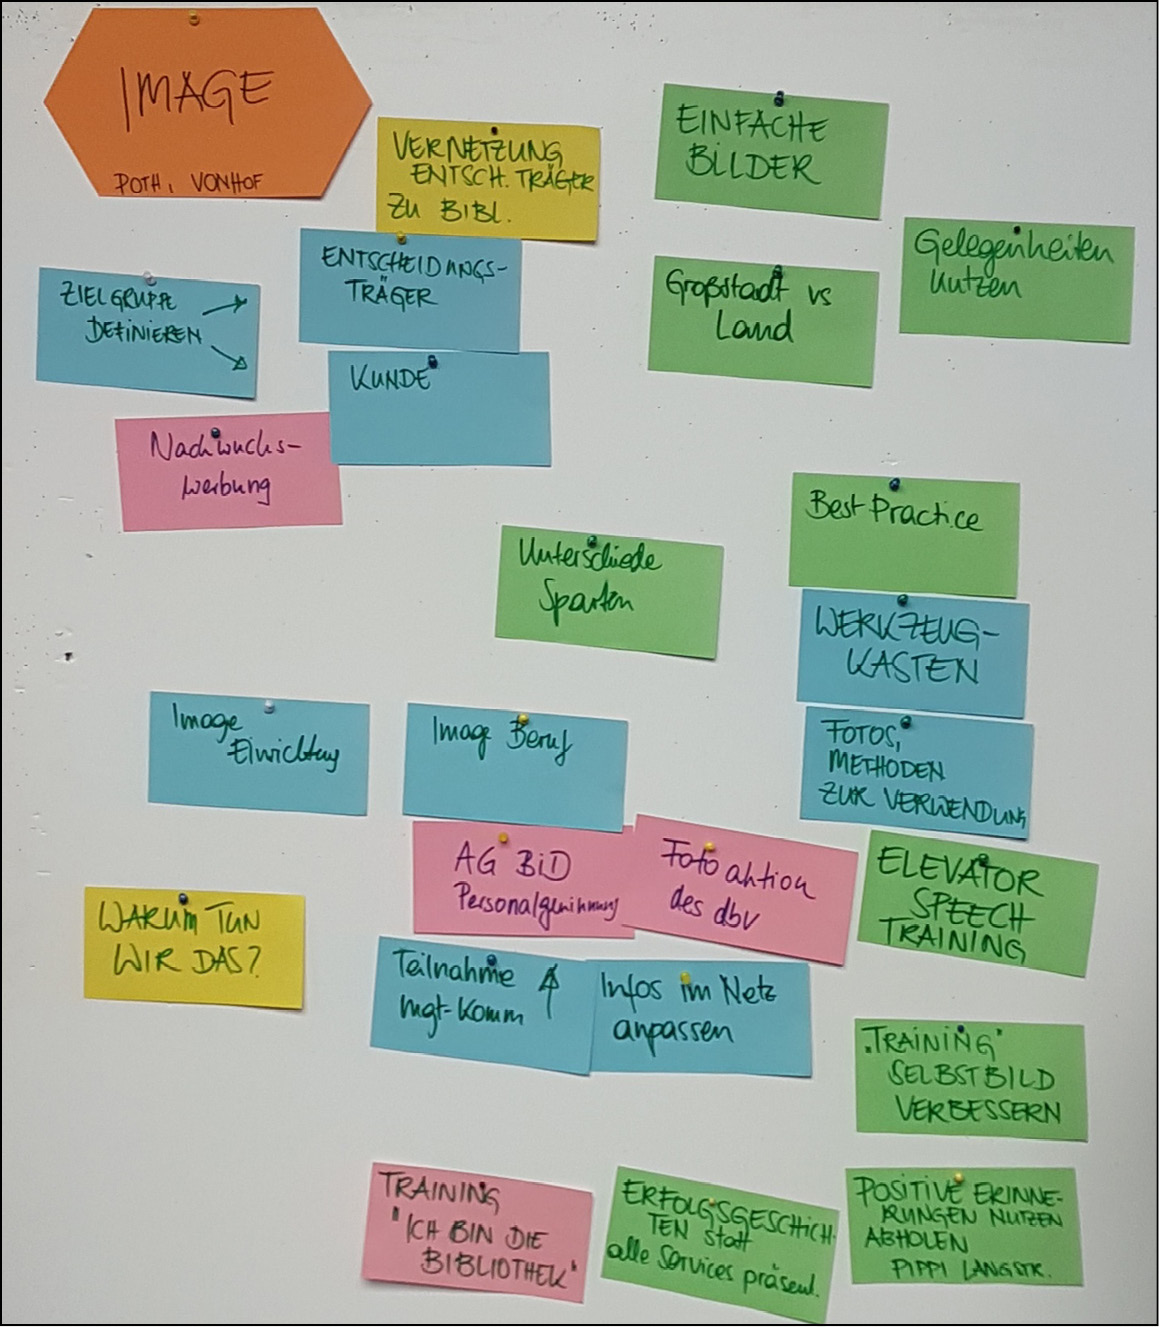 IMAGE
POTH, VONHOF
VERNETZUNG
ENTSCH. TRÄGER
ZU BIBL.
EINFACHE
BILDER
ENTSCHEIDUNGS-
TRÄGER
Gelegenheiten
nutzen
ZIELGRUPPE
DEFINIEREN
Großstadt vs
Land
KUNDE
Nachwuchs-
werbung
Best Practice
Unterschiede
Sparten
WERKZEUG-
KASTEN
Image
Einrichtung
Image Beruf
FOTOS,
METHODEN
ZUR VERWENDUNG
AG BID
Personalgewinnung
Fotoaktion
des dbv
ELEVATOR
SPEECH
TRAINING
WARUM TUN
WIR DAS?
Teilnahme
mgt-Komm
Infos im Netz
anpassen
"TRAINING"
SELBSTBILD
VERBESSERN
TRAINING
"ICH BIN DIE
BIBLIOTHEK"
ERFOLGSGESCHICH-
TEN statt
alle Services präsent.
POSITIVE ERINNE-
RUNGEN NUTZEN
ABHOLEN
PIPPI LANGSTR.